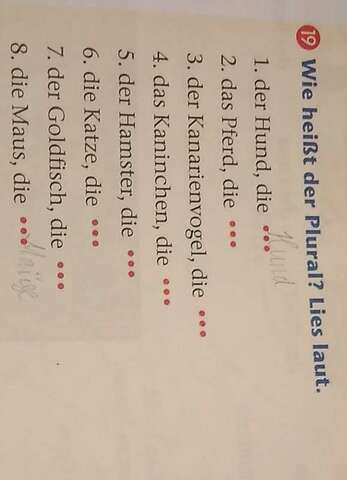 19 Wie heißt der Plural? Lies laut.
1. der Hund, die ••• Hund
2. das Pferd, die •••
3. der Kanarienvogel, die •••
4. das Kaninchen, die •••
5. der Hamster, die •••
6. die Katze, die •••
7. der Goldfisch, die •••
8. die Maus, die •••